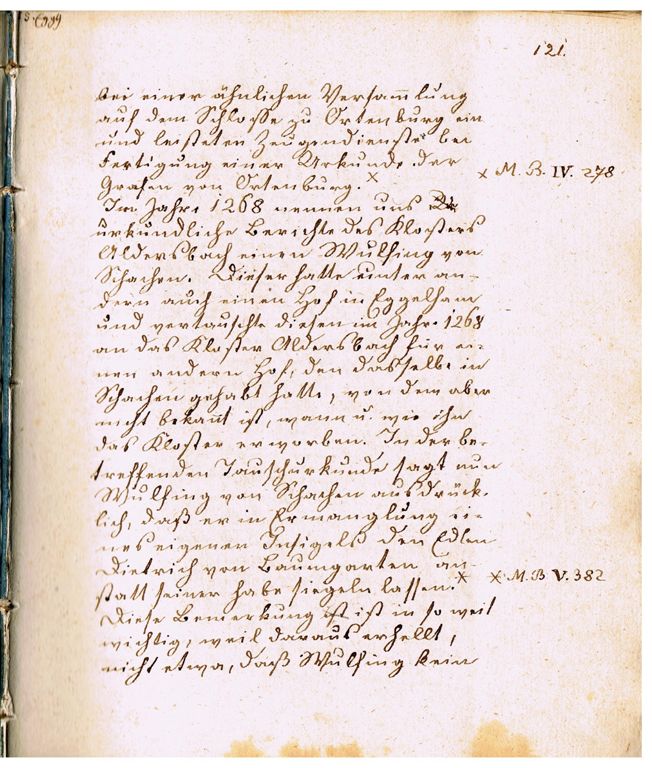 121.
bei einer ähnlichen Versam̄lung
auf dem Schlosse zu Ortenburg ein
und leisteten Zeugendienste bei
Fertigung einer Urkunde der
Grafen von Ortenburg. x
x M. B. IV. 278
Im Jahre 1268 nennen uns
urkundliche Berichte des Klosters
Aldersbach einen Wulfing von
Schachen. Dieser hatte unter an-
dern auch einen Hof in Eggelham
und vertauschte diesen im Jahre 1268
an das Kloster Aldersbach für ei-
nen andern Hof, den dasselbe in
Schachen gehabt hatte, von dem aber
nicht bekan̄t ist, wann u. wie ihn
das Kloster erworben. In der be-
treffenden Tauschurkunde sagt nun
Wulfing von Schachen ausdrück-
lich, daß er in Ermanglung ei-
nes eigenen Insigels den Edlen
Dietrich von Baumgarten an-
statt seiner habe siegeln lassen. x
x M. B V. 382
Diese Bemerkung ist ist in so weit
wichtig, weil daraus erhellt,
nicht etwa, daß Wulfing kein